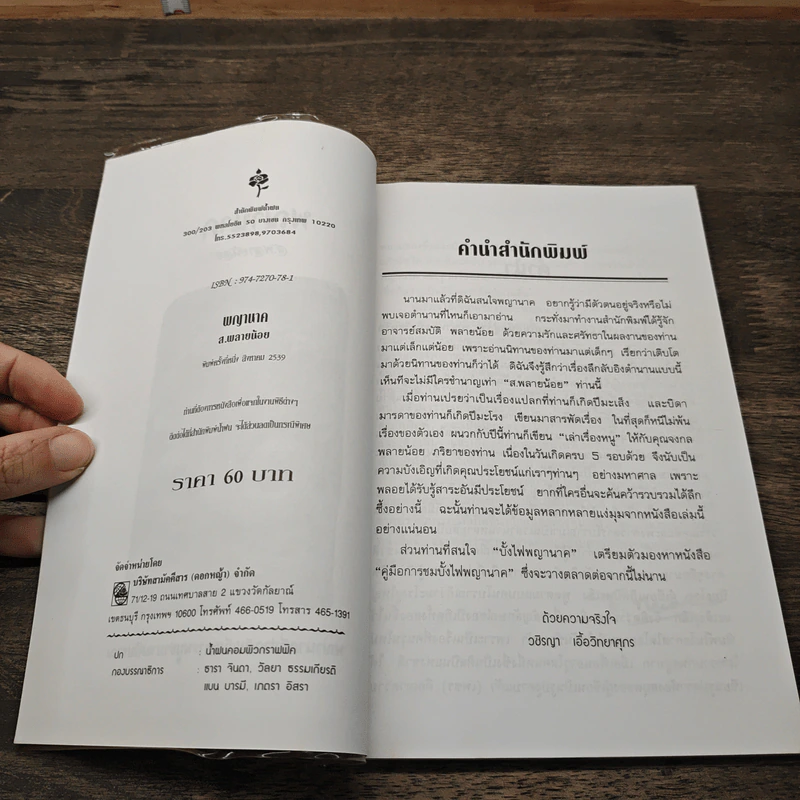 สำนักพิมพ์น้ำฝน
300/203 พหลโยธิน 50 บางเขน กรุงเทพ 10220
โทร.5523898,9703684
ISBN : 974-7270-78-1
พญานาค
ส.พลายน้อย
พิมพ์ครั้งที่หนึ่ง สิงหาคม 2539
ท่านที่ต้องการหนังสือเพื่อแจกในงานพิธีต่างๆ
ติดต่อได้ที่สำนักพิมพ์น้ำฝน จะได้ส่วนลดเป็นกรณีพิเศษ
ราคา 60 บาท
จัดจำหน่ายโดย
บริษัทสามัคคีสาร (ดอกหญ้า) จำกัด
71/12-19 ถนนเทศบาลสาย 2 แขวงวัดกัลยาณ์
เขตธนบุรี กรุงเทพฯ 10600 โทรศัพท์ 466-0519 โทรสาร 465-1391
ปก : น้ำฝนคอมพิวกราฟฟิค
กองบรรณาธิการ : ธารา จินดา, วัลยา ธรรมเกียรติ
แมน บารมี, เกตรา อิสรา
คำนำสำนักพิมพ์
นานมาแล้วที่ดิฉันสนใจพญานาค อยากรู้ว่ามีตัวตนอยู่จริงหรือไม่
พบเจอตำนานที่ไหนก็เอามาอ่าน กระทั่งมาทำงานสำนักพิมพ์ได้รู้จัก
อาจารย์สมบัติ พลายน้อย ด้วยความรักและศรัทธาในผลงานของท่าน
มาแต่เล็กแต่น้อย เพราะอ่านนิทานของท่านมาแต่เด็กๆ เรียกว่าเติบโต
มาด้วยนิทานของท่านก็ว่าได้ ดิฉันจึงรู้สึกว่าเรื่องลึกลับอิงตำนานแบบนี้
เห็นทีจะไม่มีใครชำนาญเท่า “ส.พลายน้อย” ท่านนี้
เมื่อท่านเปรยว่าเป็นเรื่องแปลกที่ท่านก็เกิดปีมะเส็ง และบิดา
มารดาของท่านก็เกิดปีมะโรง เขียนมาสารพัดเรื่อง ในที่สุดก็หนีไม่พ้น
เรื่องของตัวเอง ผนวกกับปีนี้ท่านก็เขียน “เล่าเรื่องหนู” ให้กับคุณจงกล
พลายน้อย ภริยาของท่าน เนื่องในวันเกิดครบ 5 รอบด้วย จึงนับเป็น
ความบังเอิญที่เกิดคุณประโยชน์แก่เราๆท่านๆ อย่างมหาศาล เพราะ
พลอยได้รับรู้สาระอันมีประโยชน์ ยากที่ใครอื่นจะค้นคว้ารวบรวมได้ลึก
ซึ้งอย่างนี้ ฉะนั้นท่านจะได้ข้อมูลหลากหลายแง่มุมจากหนังสือเล่มนี้
อย่างแน่นอน
ส่วนท่านที่สนใจ “บั้งไฟพญานาค” เตรียมตัวมองหาหนังสือ
“คู่มือการชมบั้งไฟพญานาค” ซึ่งจะวางตลาดต่อจากนี้ไม่นาน
ด้วยความจริงใจ
วชิรญา เอื้อวิทยาศุภร